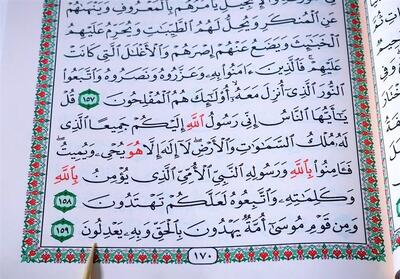 وَٱلْإِنجِيلِ يَأْمُرُهُم بِٱلْمَعْرُوفِ وَيَنْهَىٰهُمْ
عَنِ ٱلْمُنكَرِ وَيُحِلُّ لَهُمُ ٱلطَّيِّبَٰتِ وَيُحَرِّمُ عَلَيْهِمُ
ٱلْخَبَٰٓئِثَ وَيَضَعُ عَنْهُمْ إِصْرَهُمْ وَٱلْأَغْلَٰلَ ٱلَّتِى كَانَتْ
عَلَيْهِمْ ۚ فَٱلَّذِينَ ءَامَنُوا۟ بِهِۦ وَعَزَّرُوهُ وَنَصَرُوهُ وَٱتَّبَعُوا۟
ٱلنُّورَ ٱلَّذِىٓ أُنزِلَ مَعَهُۥٓ ۙ أُو۟لَٰٓئِكَ هُمُ ٱلْمُفْلِحُونَ ١٥٧ قُلْ
يَٰٓأَيُّهَا ٱلنَّاسُ إِنِّى رَسُولُ ٱللَّهِ إِلَيْكُمْ جَمِيعًا ٱلَّذِى
لَهُۥ مُلْكُ ٱلسَّمَٰوَٰتِ وَٱلْأَرْضِ لَآ إِلَٰهَ إِلَّا هُوَ يُحْىِۦ وَيُمِيتُ ۖ
فَـَٔامِنُوا۟ بِٱللَّهِ وَرَسُولِهِ ٱلنَّبِىِّ ٱلْأُمِّىِّ ٱلَّذِى يُؤْمِنُ بِٱللَّهِ
وَكَلِمَٰتِهِۦ وَٱتَّبِعُوهُ لَعَلَّكُمْ تَهْتَدُونَ ١٥٨
وَمِن قَوْمِ مُوسَىٰٓ أُمَّةٌ يَهْدُونَ بِٱلْحَقِّ وَبِهِۦ يَعْدِلُونَ ١٥٩
١٧٠